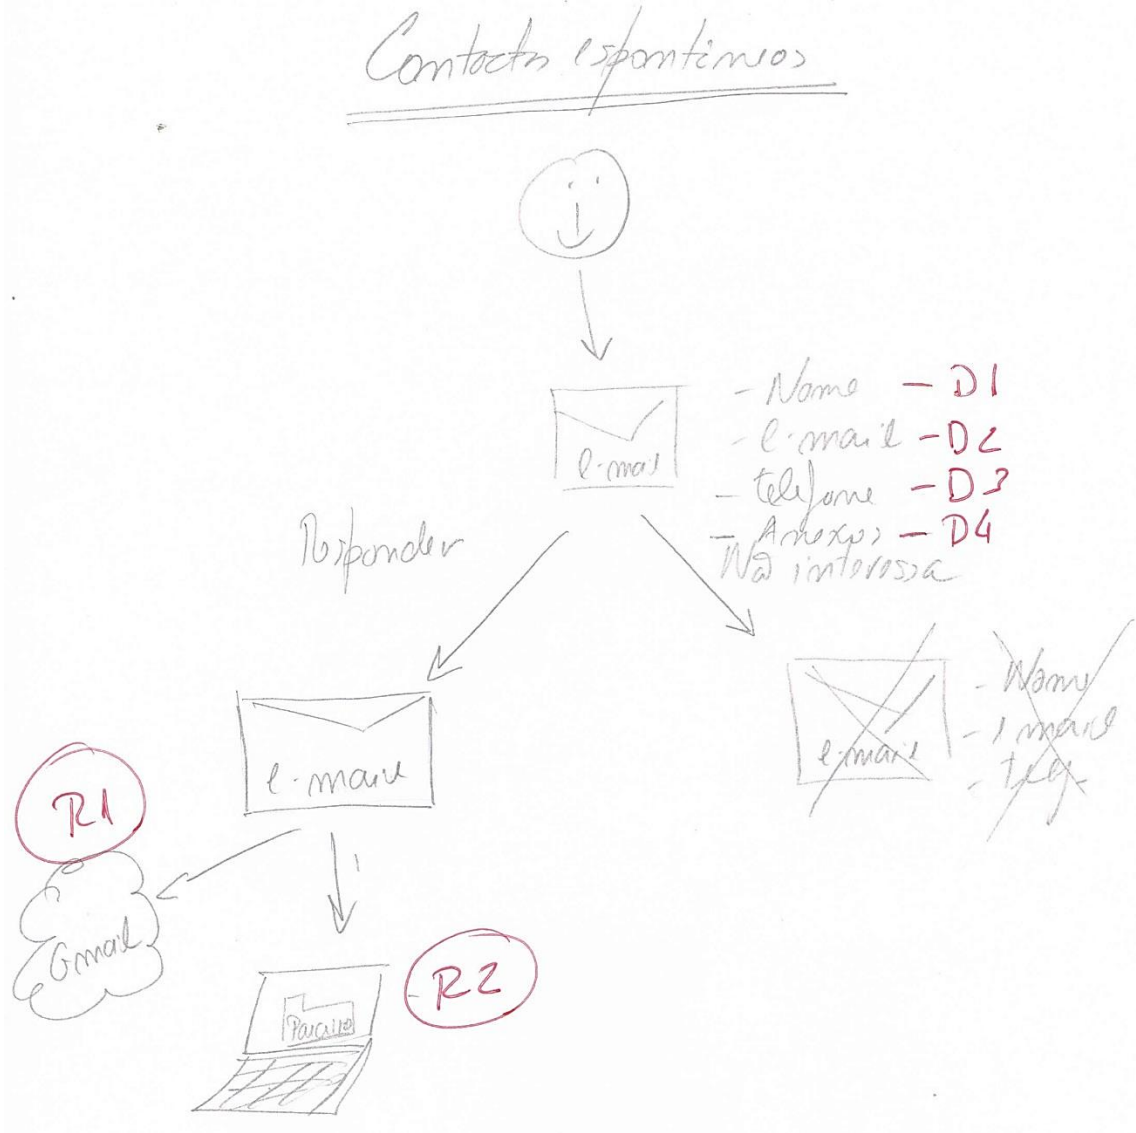 Contactos espontâneos
e-mail
- Nome - D1
- e-mail - D2
- telefone - D3
- Anexos - D4
Responder
Não interessa
e-mail
e-mail
- Nome
- e-mail
- telef.
R1
Gmail
R2